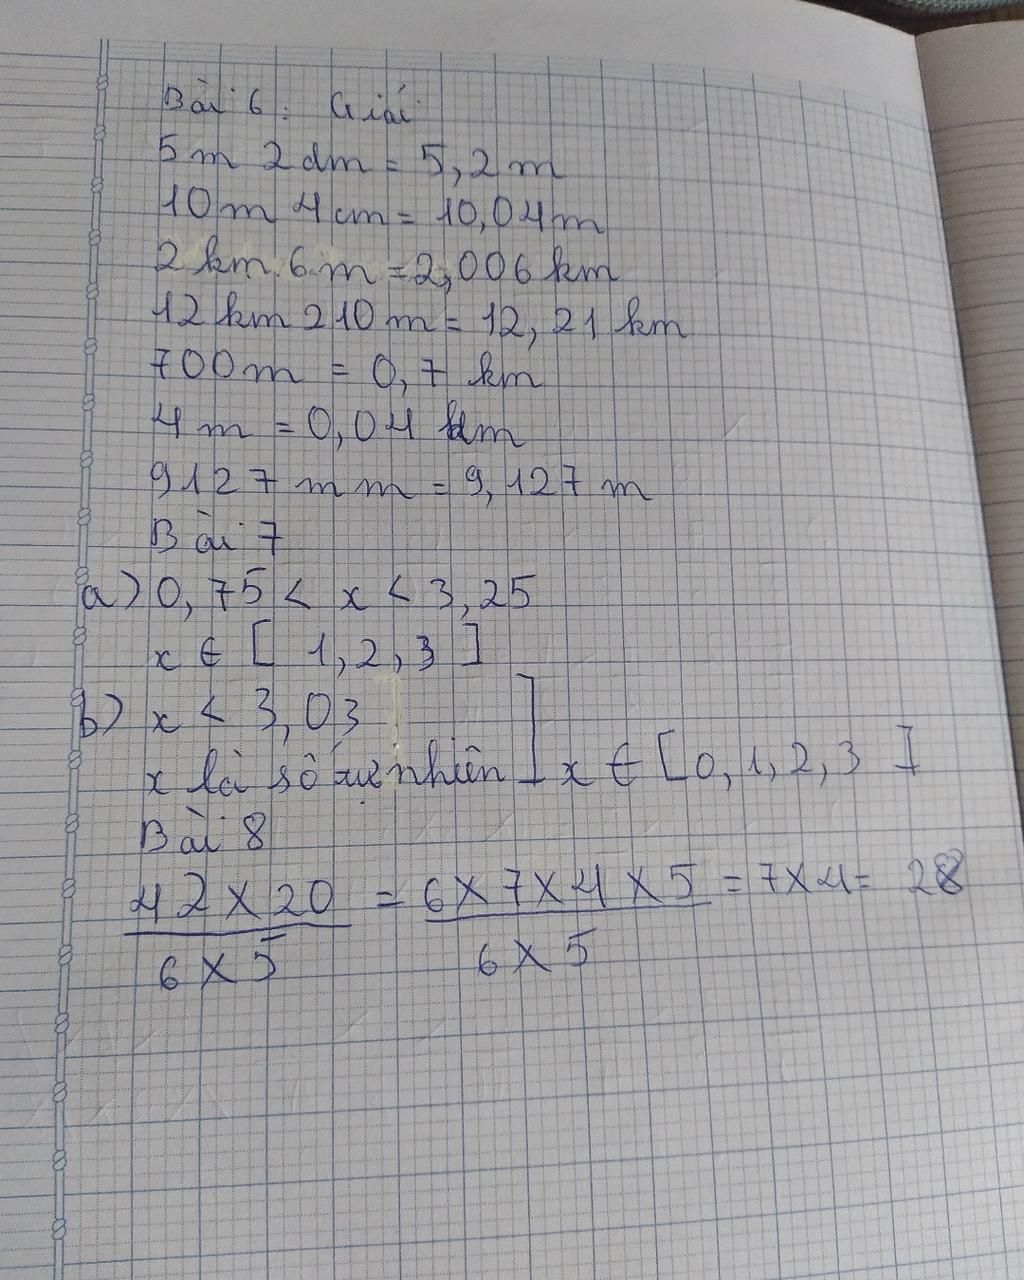 Bài 6: Giải
5m 2dm = 5,2m
10m 4cm = 10,04m
2km 6m = 2,006 km
12km 210m = 12,21 km
700m = 0,7 km
4m = 0,04 km
9127mm = 9,127m
Bài 7
a) 0,75 < x < 3,25
x ∈ [ 1,2,3 ]
b) x < 3,03
x là số tự nhiên ] x ∈ [0,1,2,3 ]
Bài 8
42 x 20 / 6 x 5 = 6 x 7 x 4 x 5 / 6 x 5 = 7 x 4 = 28